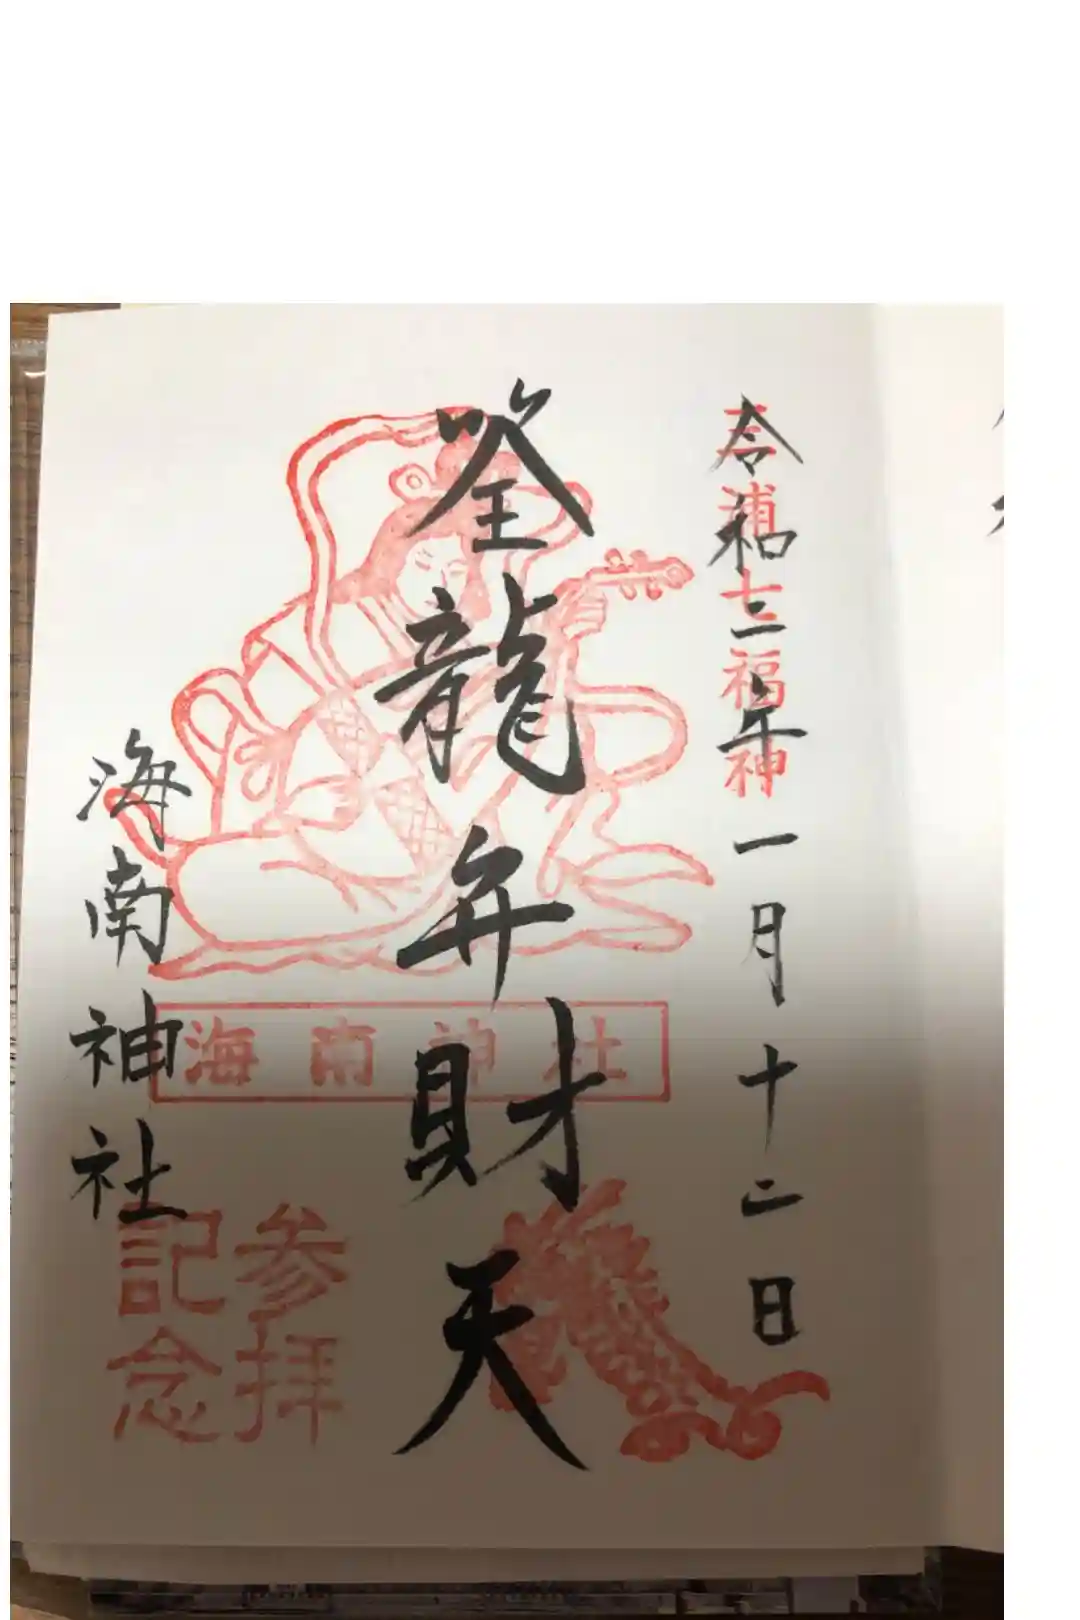 三浦七福神
令和二年一月十二日
筌龍弁財天
海南神社
海南神社
参拝
記念